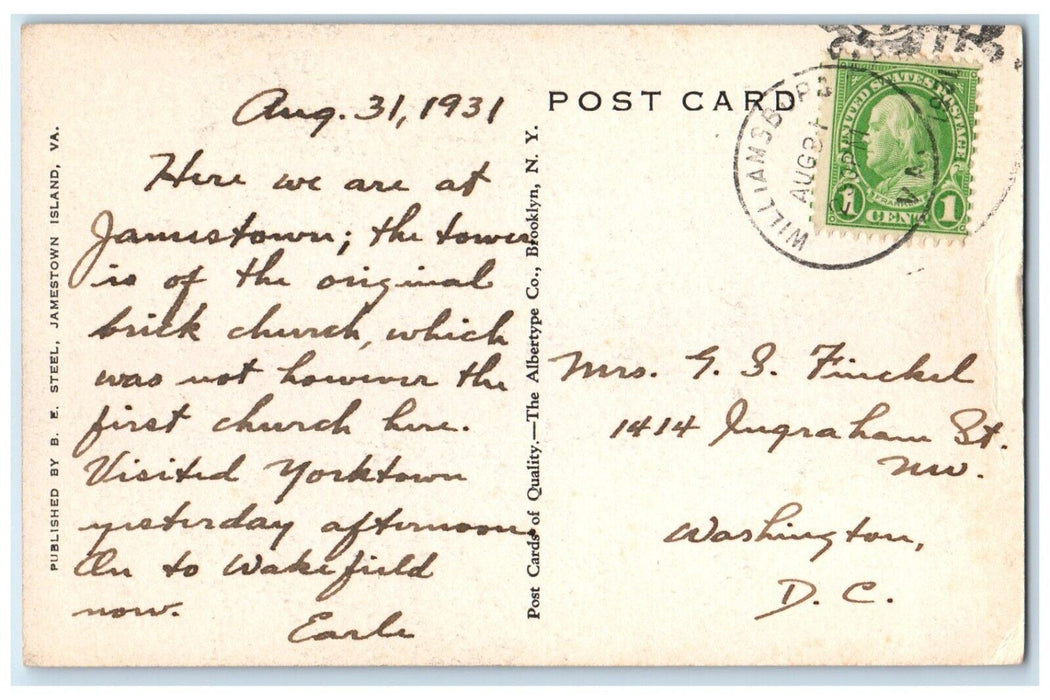 POST CARD
Aug. 31, 1931
Here we are at
Jamestown; the tower
is of the original
brick church, which
was not however the
first church here.
Visited Yorktown
yesterday afternoon.
On to Wakefield
now.
Earle
Mrs. G. S. Finckel
1414 Ingraham St.
NW.
Washington,
D. C.
PUBLISHED BY B. E. STEEL, JAMESTOWN ISLAND, VA.
Post Cards of Quality.—The Albertype Co., Brooklyn, N. Y.
WILLIAMSBURG
VA.
UNITED STATES POSTAGE
FRANKLIN
1 CENT 1